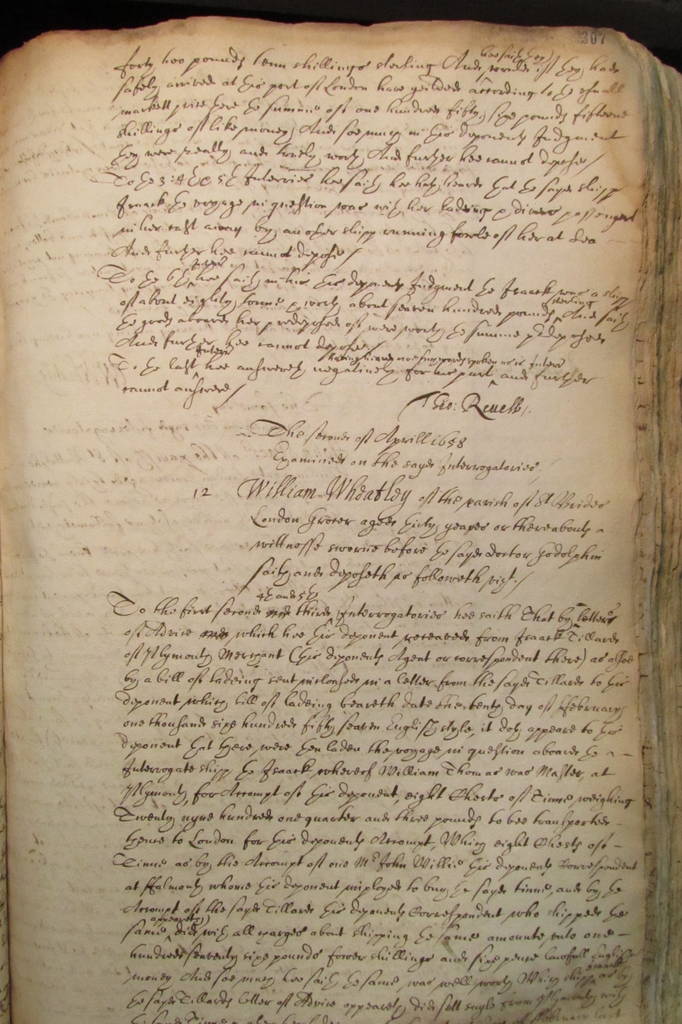 307
forty two pounds tenn shillings sterling And would if they had (hee saith they)
safely arrived at this port of London have yeilded according to the usuall
markett price here the summe of one hundred fifty sixe pounds fifteene
shillings of like money, And soe much in his deponents Judgment
they were really and truely worth, And further hee cannot depose /
To the 3: 4th & 5th Interries hee saith hee hath heard that the sayd shipp
Isaack the voyage in question was with her ladeing & divers passengers
in her cast away by another shipp running fowle of her at Sea
And further hee cannot depose /
To the 6th Interrie hee saith in his this deponents Judgment the Isaack was a shipp
of about eighty tonne & worth about seaven hundred pounds sterling And saith
the goods aboard her predeposed of were worth the summe predeposed
And further hee cannot depose /
To the last Interrie hee answereth negatively for his part and further
cannot answere /
Tho: Revell /.
The second of Aprill 1658
Examined on the sayd Interrogatories
12 William Wheatley of the parish of St Brides
London Grocer aged thirty yeares or thereabouts
wittnesse sworne before the sayd doctor Godolphin
saith and deposeth as followeth vizt. /
To the first second third 4th and 5th Interrogatories hee saith That by letters
of Advice which hee this deponent received from Isaack Tillard
of Plymouth Merchant (this deponents Agent or correspondent there) as alsoe
by a bill of ladeing sent inclosed in a letter from the sayd Tillard to this
deponent which bill of ladeing beareth date the twenty day of February
one thousand sixe hundred fifty seaven English style, it doth appeare to this
deponent that there were then laden the voyage in question aboard the
Interrogate shipp the Isaack whereof William Thomas was Master, at
Plymouth for Accompt of this deponent, eight Chests of Tinne weighing
Twenty nyne hundred one quarter and three pounds to bee transported
thence to London for this deponents Accompt, Which eight Chests of
Tinne as by the Accompt of one Mr John Willie this deponents Correspondent
at Falmouth whome this deponent imployed to buy the sayd tinne, and by the
Accompt of the sayd Tillard this deponents Correspondent who shipped the
same, (appeareth) did with all charges about shipping the same amounte unto one
hundred seaventy sixe pounds fower shillings and sixe pence lawfull English
money And soe much hee saith the same was well worth Which shipp as by
the sayd Tillards letter of Advice appeareth did sett sayle from Plymouth with